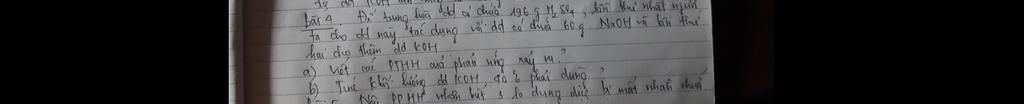 bài 4. Để trung hòa dd có chứa 196 g H2SO4, lần thứ nhất người
ta cho dd này tác dụng với dd có chứa 60 g NaOH và lần thứ
hai cho thêm dd KOH
a) Viết các PTHH của phản ứng xảy ra?
b) Tính khối lượng dd KOH, đã phải dùng?
PPHH nhãn 3 lọ dung dịch bị mất nhãn chứa